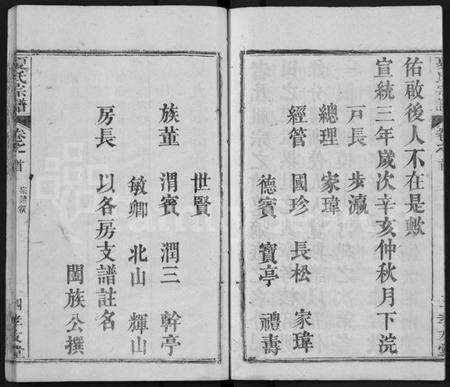 佑啟後人不在是歟
宣統三年歲次辛亥仲秋月下浣
戸長 步瀛
總理 家瑋
經管 國珍 長松 家瑋
德賓 寶亭 禮壽
世賢
族董 渭賓 潤三 幹亭
敏卿 北山 輝山
房長 以各房支譜註名
闔族公撰
夏氏宗譜
卷之首
四
孝友堂